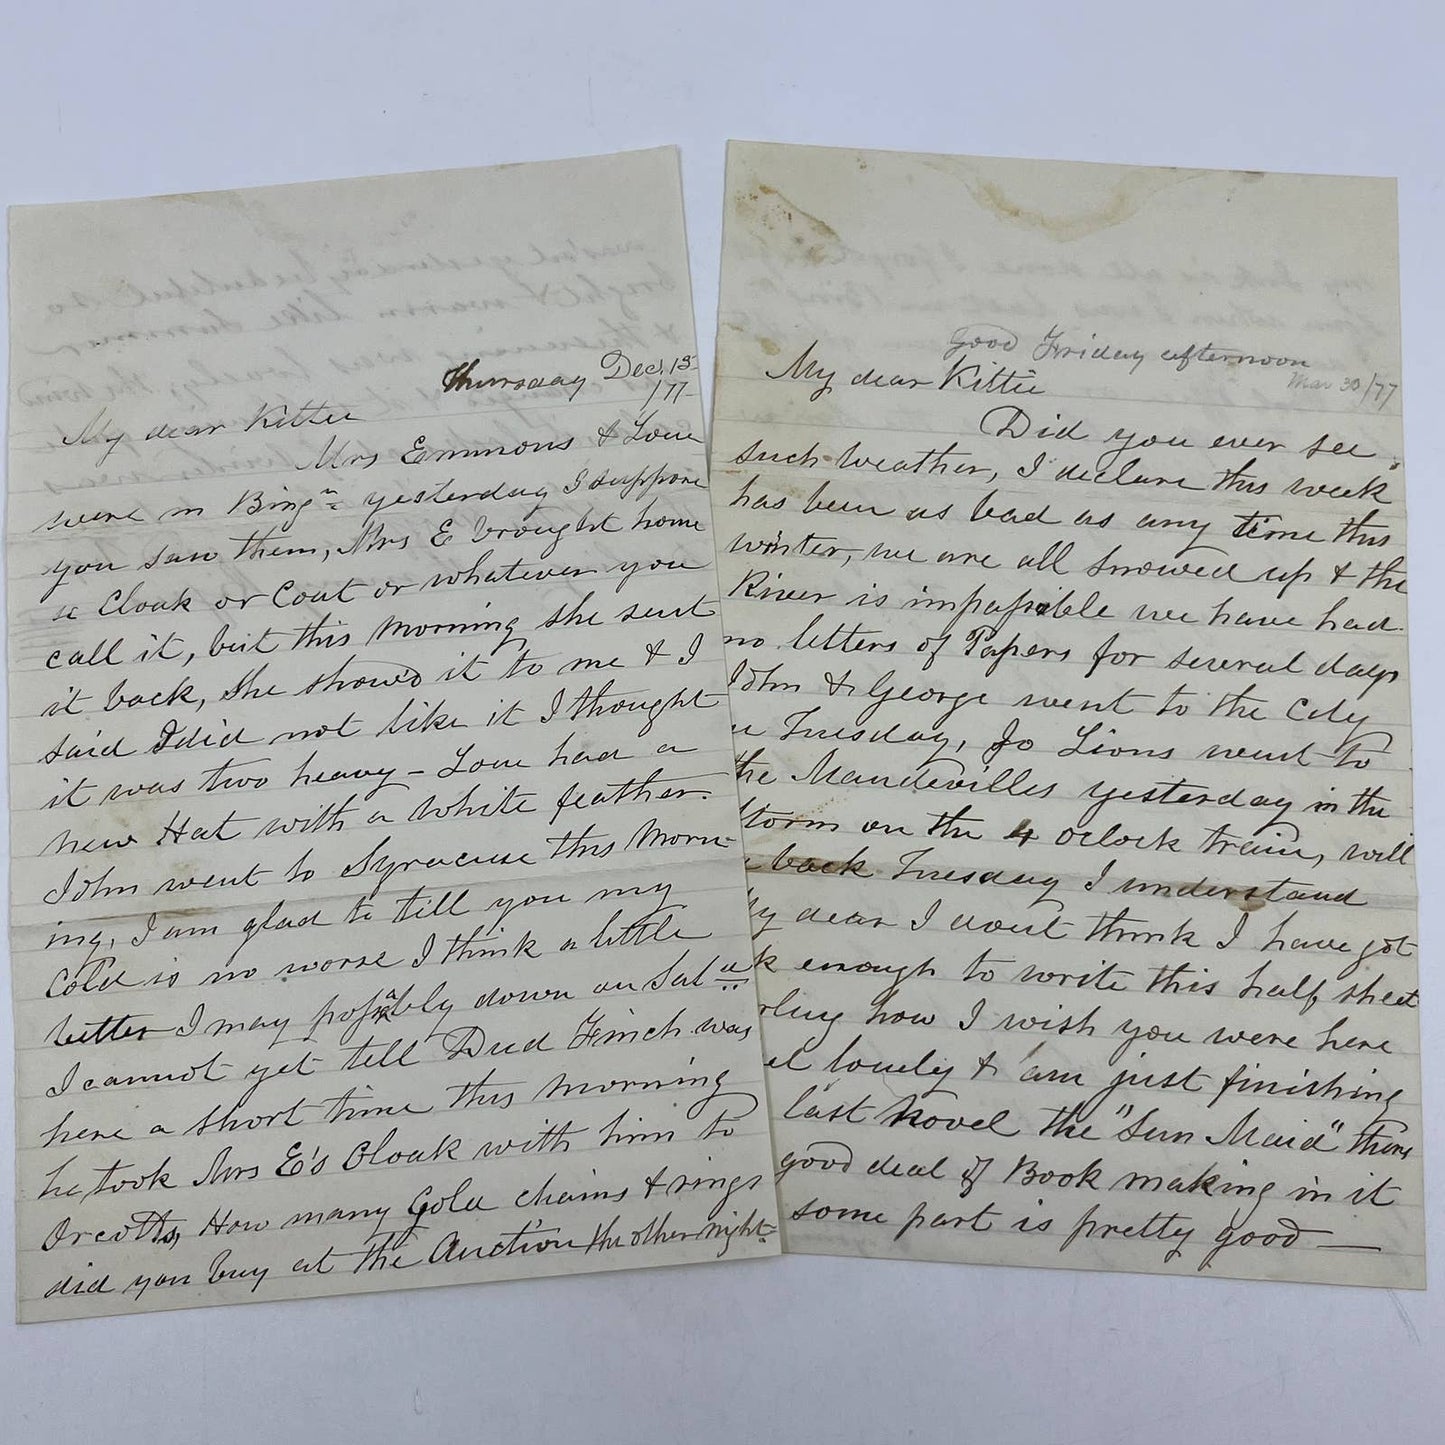 Thursday Dec. 13
/77-
My dear Kittie
Mrs Emmons & Lou
were in Bingn yesterday I suppose
you saw them, Mrs E brought home
a Cloak or Coat or whatever you
call it, but this morning she sent
it back, she show'd it to me & I
said I did not like it I thought
it was two heavy - Lou had a
new Hat with a white feather.
John went to Syracuse this Morn-
ing, I am glad to tell you my
Cold is no worse I think a little
better I may possably down on Sat
I cannot yet tell Dud Finch was
here a short time this morning
he took Mrs E's Cloak with him to
Orcotts, How many Gold chains & rings
did you buy at the Auction the other night
Good Friday afternoon
Mar 30/77
My dear Kittie
Did you ever see
such weather, I declare this week
has been as bad as any time this
winter, we are all snowed up & the
River is impassible we have had
no letters of Papers for several days
John & George went to the City
Tuesday, Jo Lions went to
the Mandevilles yesterday in the
storm on the 4 oclock train, will
back Tuesday I understand
dear I dont think I have got
enough to write this half sheet
how I wish you were here
lonely & am just finishing
last Novel the "Sun Maid" there
good deal of Book making in it
some part is pretty good —